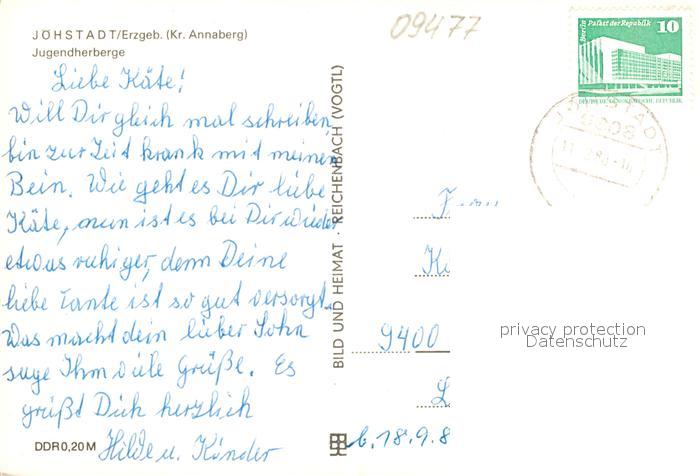 JÖHSTADT/Erzgeb. (Kr. Annaberg)
Jugendherberge
09477
Liebe Käte!
Will Dir gleich mal schreiben,
bin zur Zeit krank mit meinen
Bein. Wie geht es Dir liebe
Käte, nun ist es bei Dir wieder
etwas ruhiger, denn Deine
liebe Tante ist so gut versorgt.
Was macht dein lieber Sohn
sage Ihm viele Grüße. Es
grüßt Dich herzlich
Hilde u. Kinder
DDR 0,20 M
BILD UND HEIMAT · REICHENBACH (VOGTL)
Berlin Palast der Republik
10
DEUTSCHE DEMOKRATISCHE REPUBLIK
JÖHSTADT
9308
9400
privacy protection
Datenschutz
b. 18.9.8